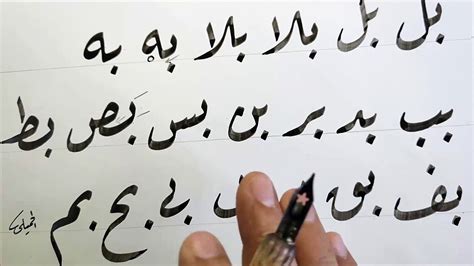 بل بل بلا بلا به به
بب بد بر بن بس بص بط
بف بق بى بح بم